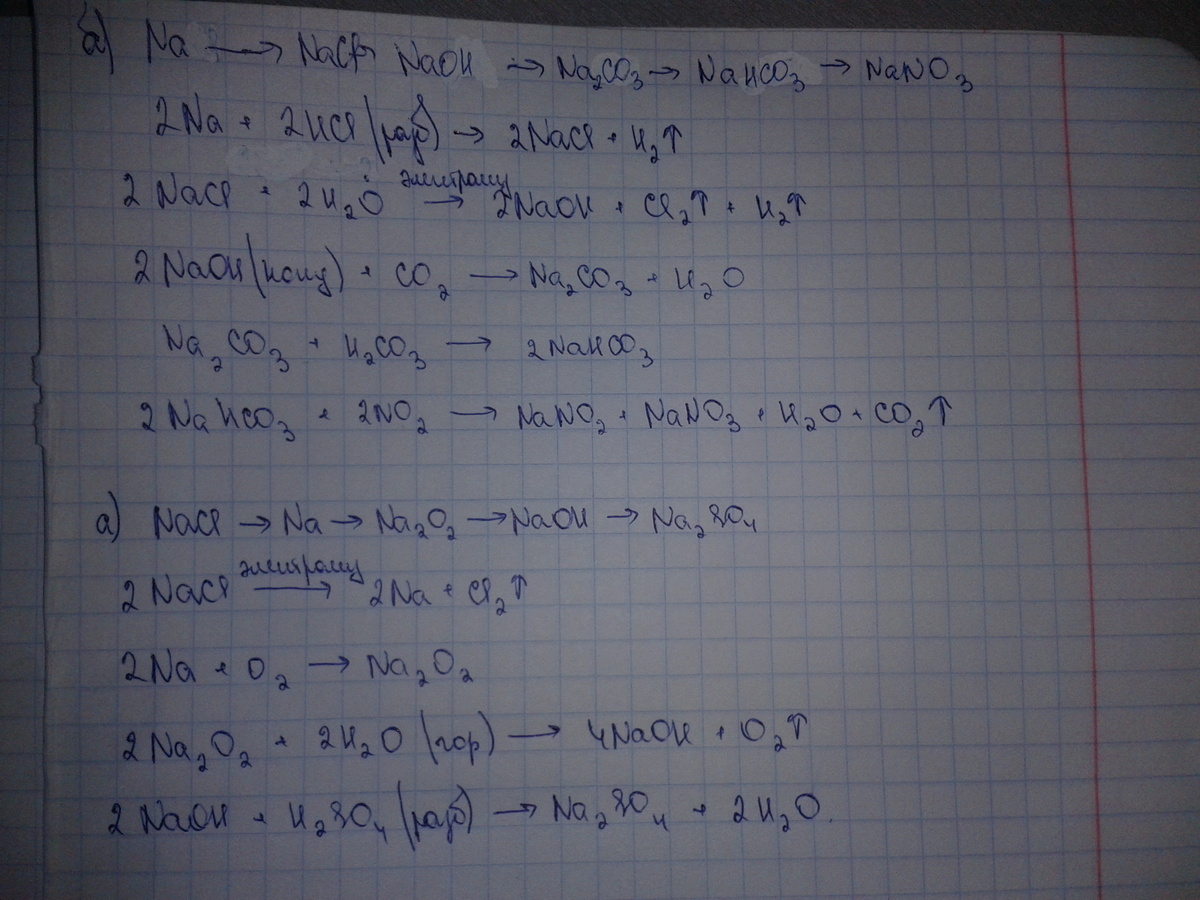 б) Na → NaCl → NaOH → Na₂CO₃ → NaHCO₃ → NaNO₃
2Na + 2HCl (разб) → 2NaCl + H₂↑
2 NaCl + 2H₂O электролиз → 2NaOH + Cl₂↑ + H₂↑
2 NaOH (конц) + CO₂ → Na₂CO₃ + H₂O
Na₂CO₃ + H₂CO₃ → 2NaHCO₃
2 NaHCO₃ + 2NO₂ → NaNO₂ + NaNO₃ + H₂O + CO₂↑
а) NaCl → Na → Na₂O₂ → NaOH → Na₂SO₄
2 NaCl электролиз → 2Na + Cl₂↑
2Na + O₂ → Na₂O₂
2 Na₂O₂ + 2H₂O (гор) → 4NaOH + O₂↑
2 NaOH + H₂SO₄ (разб) → Na₂SO₄ + 2H₂O.